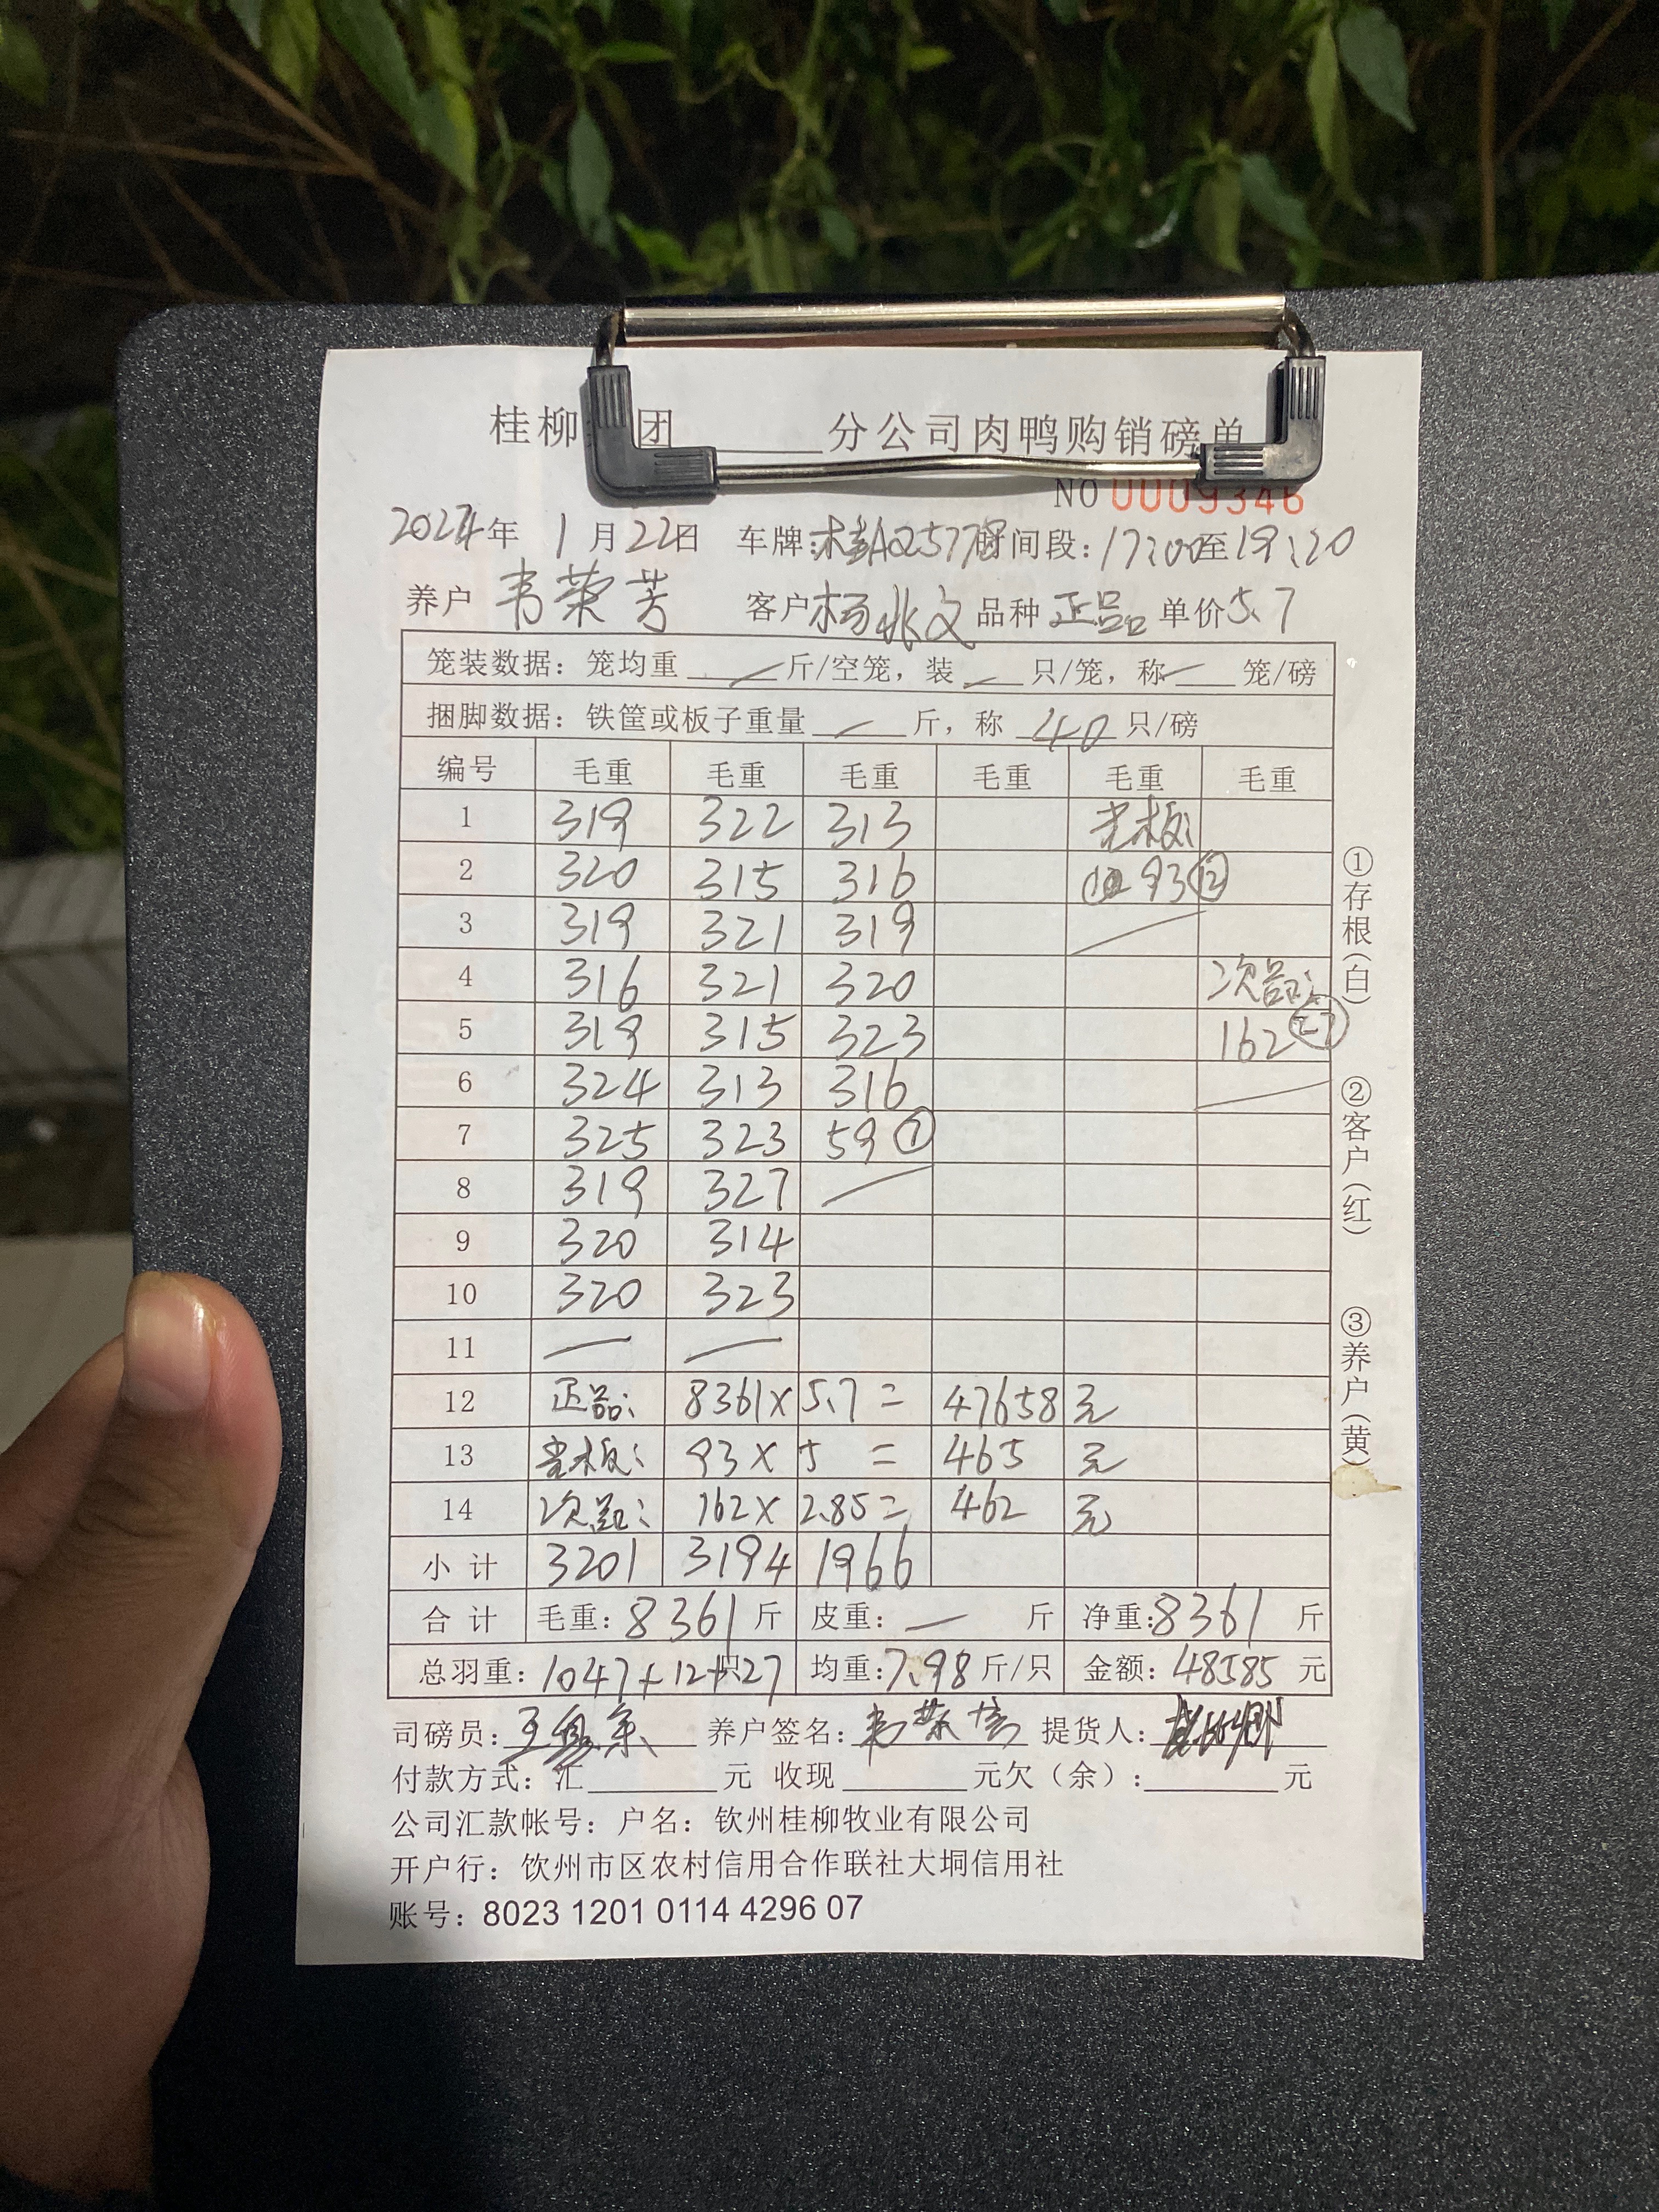 桂柳 团______分公司肉鸭购销磅单
NO 0009346
2024年 1月22日 车牌:桂AQ577 时间段:17:00至19:20
养户 韦荣芳 客户 杨兆文 品种 正品 单价 5.7
笼装数据: 笼均重 — 斤/空笼, 装 — 只/笼, 称 — 笼/磅
捆脚数据: 铁筐或板子重量 — 斤, 称 40 只/磅
编号 毛重 毛重 毛重 毛重 毛重 毛重
1 319 322 313 光板:
2 320 315 316 93 ⑫
3 319 321 319
4 316 321 320 次品:
5 319 315 323 162 ㉗
6 324 313 316
7 325 323 59 ⑦
8 319 327 —
9 320 314
10 320 323
11 — —
12 正品: 8361 × 5.7 = 47658 元
13 光板: 93 × 5 = 465 元
14 次品: 162 × 2.85 = 462 元
小 计 3201 3194 1966
合 计 毛重: 8361 斤 皮重: — 斤 净重: 8361 斤
总羽重: 1047+12+27 只 均重: 7.98 斤/只 金额: 48585 元
司磅员: 养户签名: 韦荣芳 提货人:
付款方式: 汇______元 收现______元欠(余):______元
公司汇款帐号: 户名: 钦州桂柳牧业有限公司
开户行: 钦州市区农村信用合作联社大垌信用社
账号: 8023 1201 0114 4296 07
①存根(白)
②客户(红)
③养户(黄)